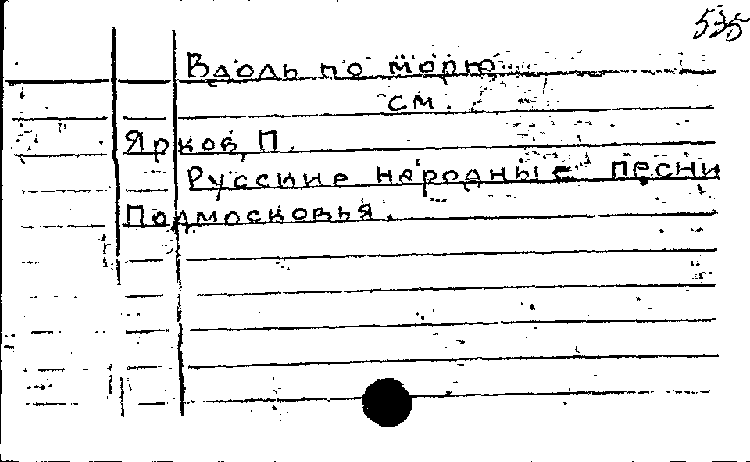 535
Вдоль по морю
см.
Ярков, П.
Русские народные песни
Подмосковья.